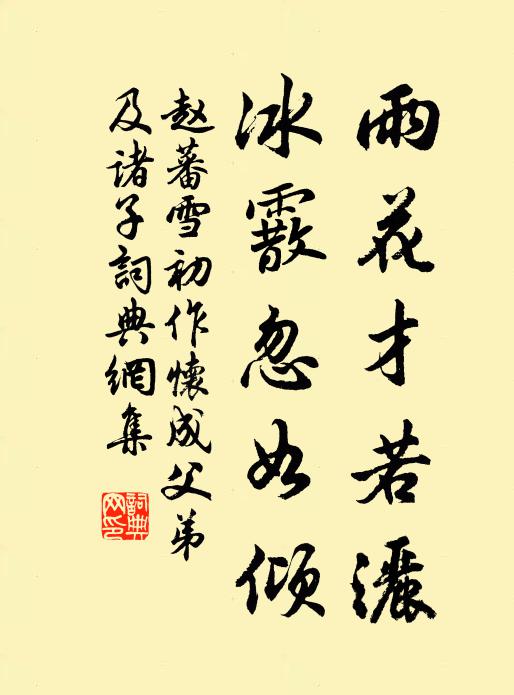 雨花才若灑
冰霰忽如傾
赵蕃雪初作懷成父弟
及诸子詞典網集
詞典网印